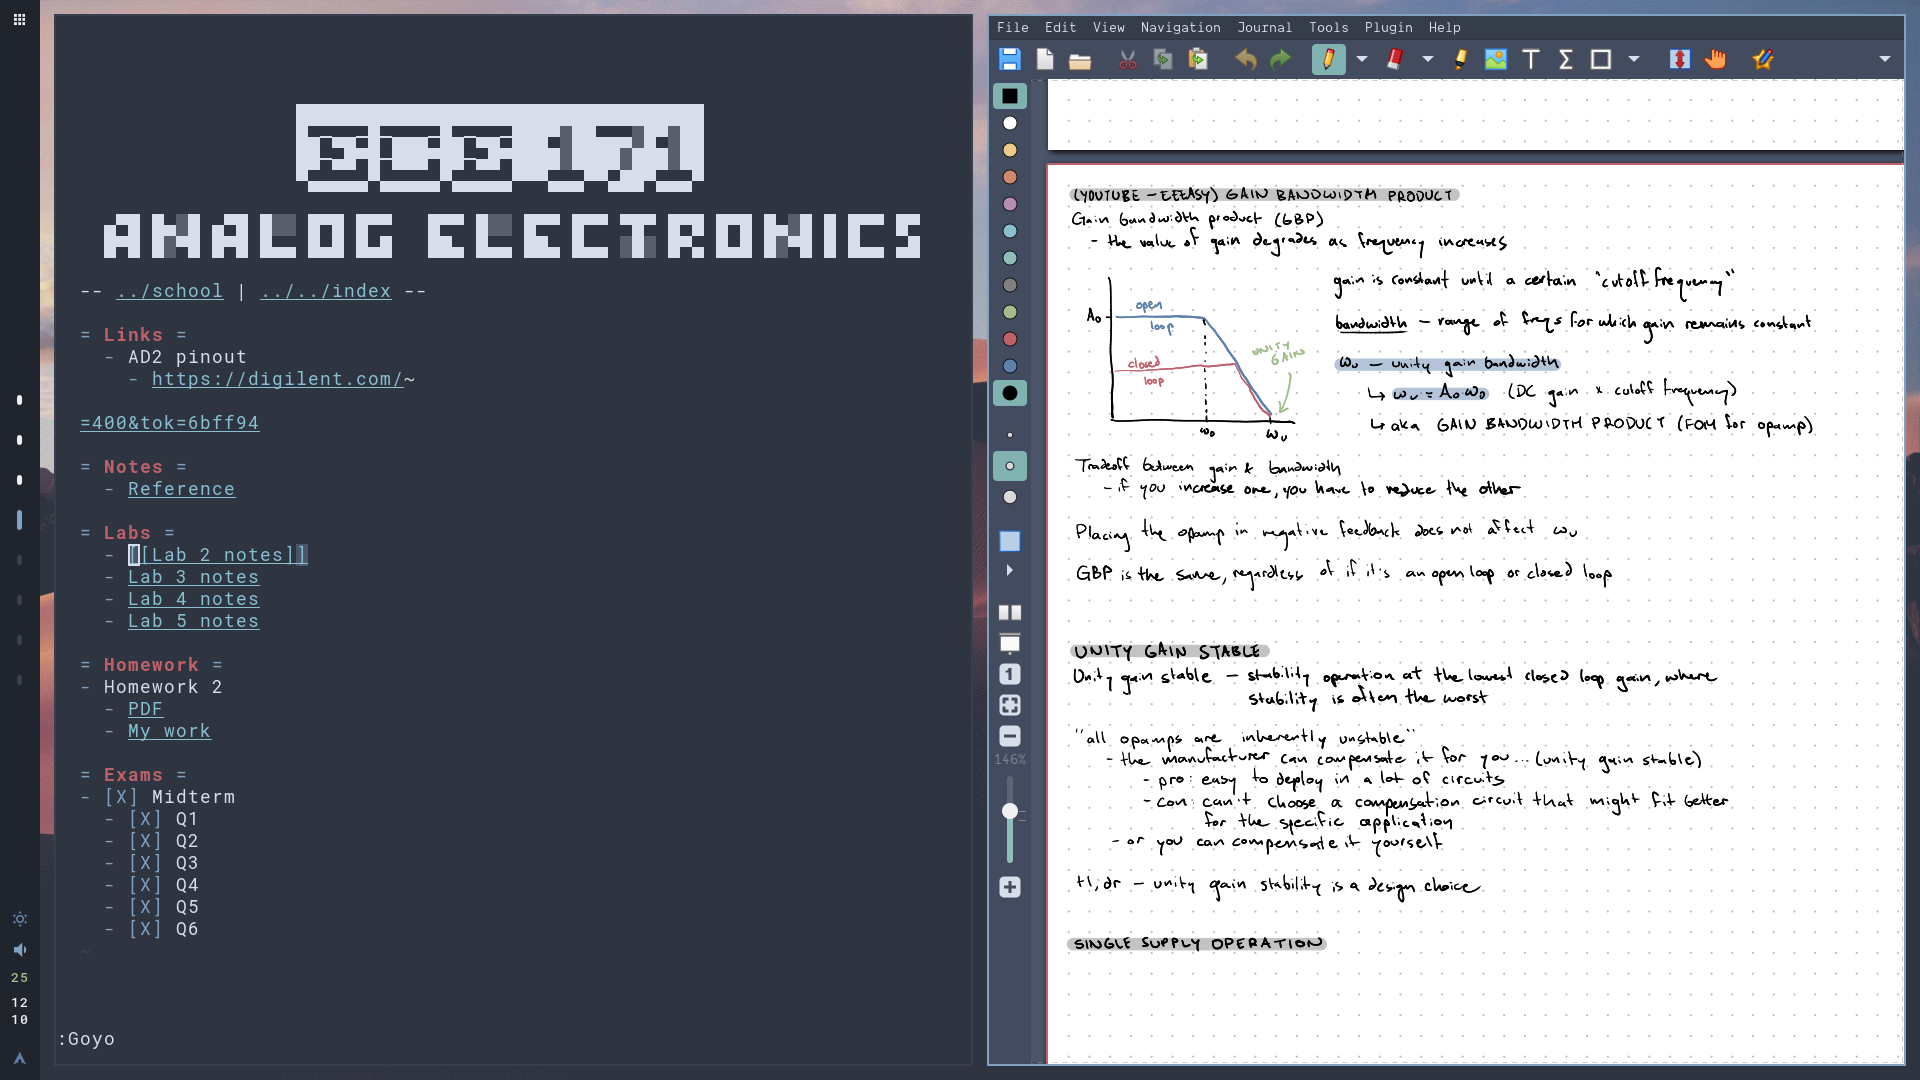 ECE 171
ANALOG ELECTRONICS
-- ../school | ../../index --
= Links =
- AD2 pinout
- https://digilent.com/~
=400&tok=6bff94
= Notes =
- Reference
= Labs =
- [[Lab 2 notes]]
- Lab 3 notes
- Lab 4 notes
- Lab 5 notes
= Homework =
- Homework 2
- PDF
- My work
= Exams =
- [X] Midterm
- [X] Q1
- [X] Q2
- [X] Q3
- [X] Q4
- [X] Q5
- [X] Q6
~
:Goyo
25
12
10
File Edit View Navigation Journal Tools Plugin Help
146%
(YOUTUBE - EEEASY) GAIN BANDWIDTH PRODUCT
Gain bandwidth product (GBP)
- the value of gain degrades as frequency increases
A₀
open
loop
closed
loop
UNITY
GAIN
ω₀
ωᵤ
gain is constant until a certain "cutoff frequency"
bandwidth - range of freqs for which gain remains constant
ωᵤ - unity gain bandwidth
↳ ωᵤ = A₀ω₀ (DC gain x cutoff frequency)
↳ aka GAIN BANDWIDTH PRODUCT (FOM for opamp)
Tradeoff between gain & bandwidth
- if you increase one, you have to reduce the other
Placing the opamp in negative feedback does not affect ωᵤ
GBP is the same, regardless of if it's an open loop or closed loop
UNITY GAIN STABLE
Unity gain stable - stability operation at the lowest closed loop gain, where
stability is often the worst
"all opamps are inherently unstable"
- the manufacturer can compensate it for you... (unity gain stable)
- pro: easy to deploy in a lot of circuits
- con: can't choose a compensation circuit that might fit better
for the specific application
- or you can compensate it yourself
tl;dr - unity gain stability is a design choice
SINGLE SUPPLY OPERATION